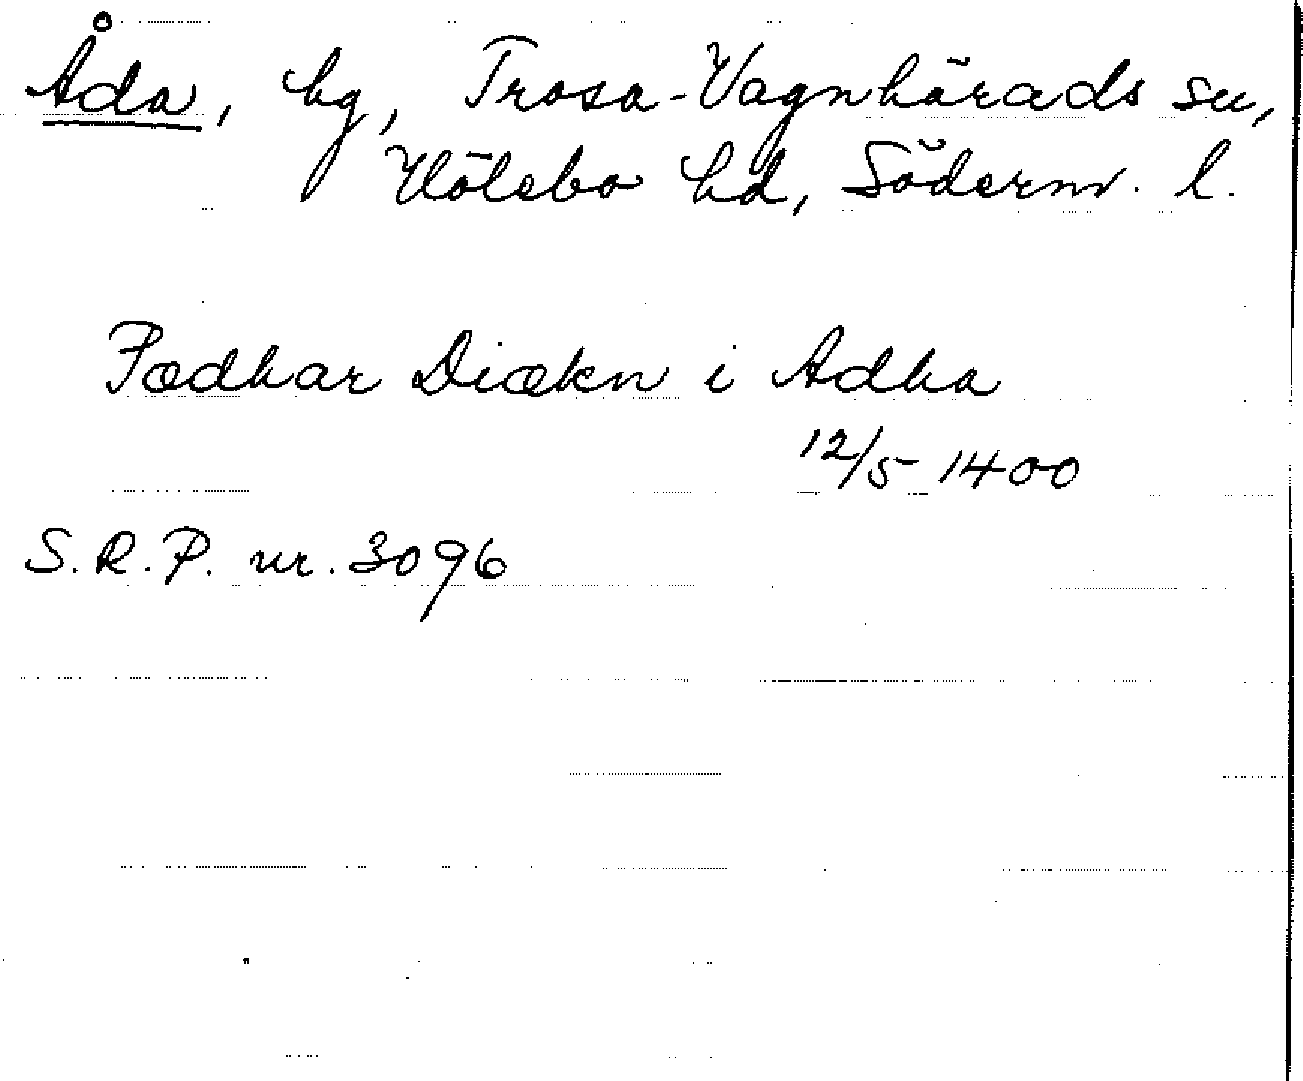 Åda, hg, Trosa-Vagnhärads sn,
Hölebo hd, Söderm. l.
Pædhar Diækn i Adha
12/5 1400
S.R.P. nr. 3096